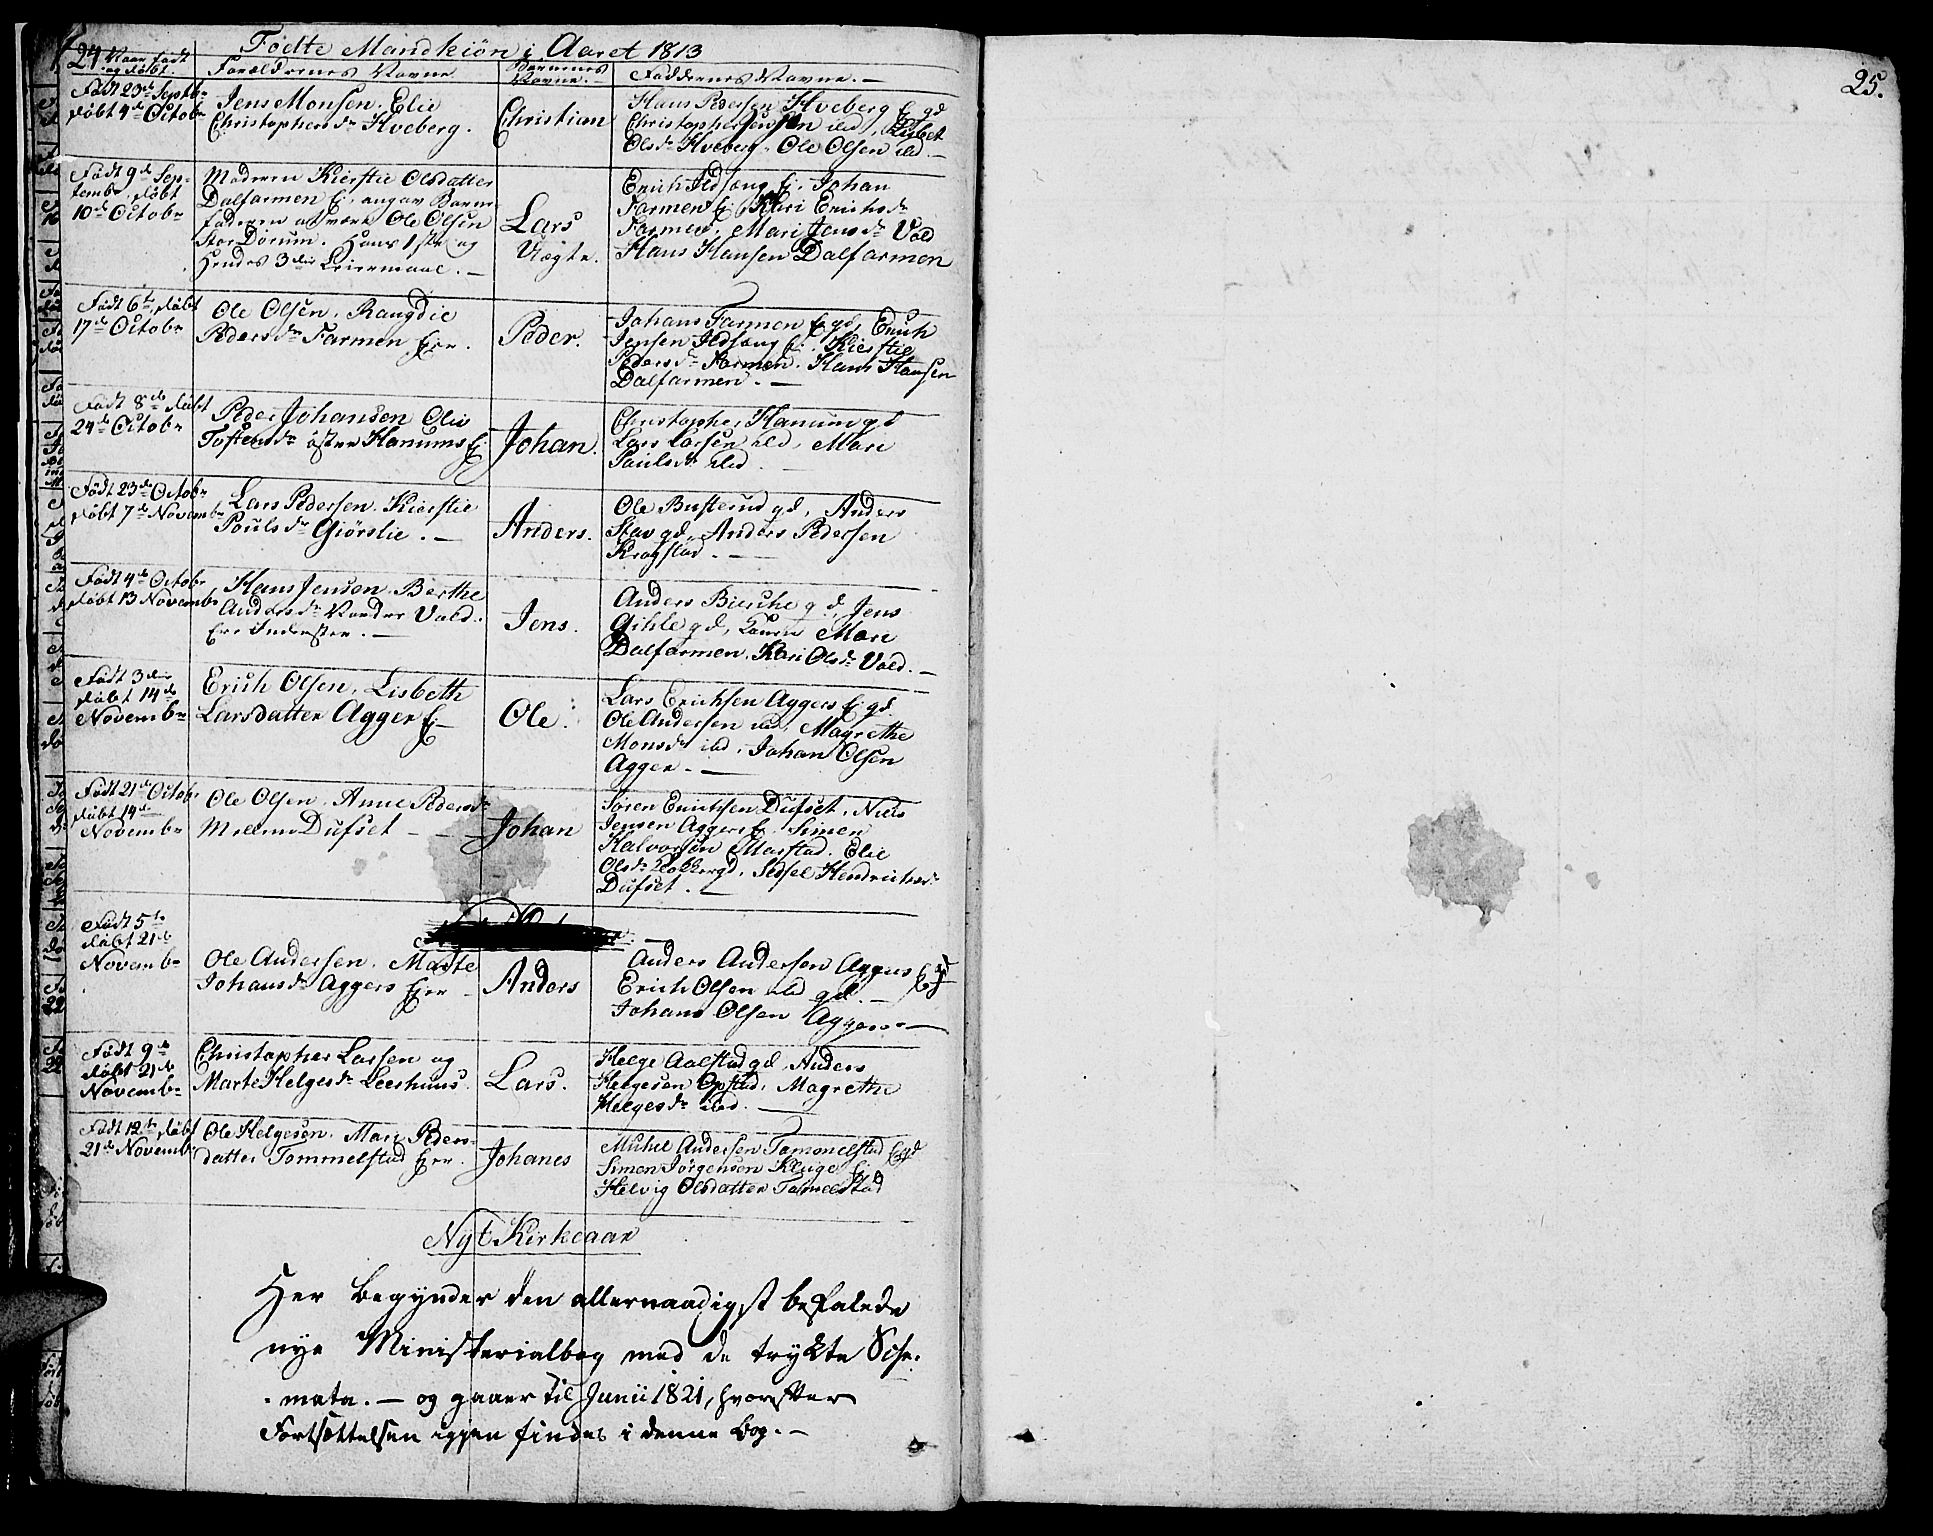 24
Fødte Mandkiön i Aaret 1813
Naar født og døbt.
Forældrenes Navne
Børnenes Navne.
Faddernes Navne. —
Født 23de Septbr
døbt 4de Octobr
Jens Monsen. Elie
Christophersdr Hveberg.
Christian
Hans Pedersen Hveberg Ej gd
Christophersen ibd, Lisbet
Olsdr Hveberg. Ole Olsen ibd. —
Født 9de Sep-
tembr, døbt
10de Octobr
Moderen Kierstie Olsdatter
Dalfarmen Ej, angav Barne
faderen at være Ole Olsen
Stor Dørum. Hans 1ste og
Hendes 3die Leiermaal. —
Lars
Uægte.
Erich Ildsang Ej. Johan
Farmen Ej, Kari Erichsdr
Farmen. Mari Jensdr Vold
Hans Hansen Dalfarmen
Født 6te, døbt
17de Octobr
Ole Olsen, Rangdie
Pedersdr Farmen Eie.
Peder.
Johans Farmen Ej gd, Erich
Jensen Ildsang Ej. Kierstie
Pedersdr Farmen. Hans Hansen
Dalfarmen. —
Født 8de døbt
24de Octobr
Peder Johansen Olia
Tostensdr östre Hanums Ej
Johan.
Christopher Hanum gd
Lars Larsen ibd, Mari
Paulsdr ibd. —
Født 23de Octobr
døbt 7de Novembr
Lars Pedersen. Kierstie
Poulsdr Giörslie. —
Anders.
Ole Busterud gd, Anders
Stav gd, Anders Pedersen
Kragstad. —
Født 4de Octobr
døbt 13 Novembr
Hans Jensen. Berthe
Andersdr Nordre Vold.
Eie Inderster. —
Jens.
Anders Bierche gd, Jens
Gihle gd, Mari
Dalfarmen. Kari Olsdr Vold. —
Født 3die
døbt 14de
Novembr
Erich Olsen, Lisbeth
Larsdatter Agger Ej —
Ole.
Lars Erichsen Aggers Ej gd.
Ole Andersen ibd, Magrethe
Monsdr ibd, Johan Olsen
Agger. —
Født 21de Octobr
døbt 14de
Novembr
Ole Olsen, Anne Pedersdr
Dufset —
Johan
Søren Erichsen Dufset, Niels
Jensen Aggers Ej. Simen
Halvorsen Marstad. Elie
Olsdr gd, Sidsel Hendrichsdr
Dufset. —
Født 5te
døbt 21de
Novembr
Ole Andersen. Marte
Johansdr Aggers Eie —
Anders
Anders Andersen Aggers Ej gd
Erich Olsen ibd gd. —
Johans Olsen Aggers. —
Født 9de
døbt 21de
Novembr
Christopher Larsen og
Marte Helgesdr Leerhuus.
Lars.
Helge Aalstad gd, Anders
Helgesen Opstad, Magrethe
Helgesdr ibd. —
Født 12te døbt
21de Novembr
Ole Helgesen. Mari Peders-
datter Tommelstad Eie.
Johanes
Michel Andersen Tommelstad Ej gd
Simen Jörgensen Kluge Ej
Helvig Olsdatter Tomelstad
Nyt Kirkeaar
Her begynder den allernaadigst befalede
nye Ministerialbog med de trykte Sche-
mata. — og gaaer til Junii 1821, hvorefter
Fortsættelsen igjen findes i denne Bog. —
25.